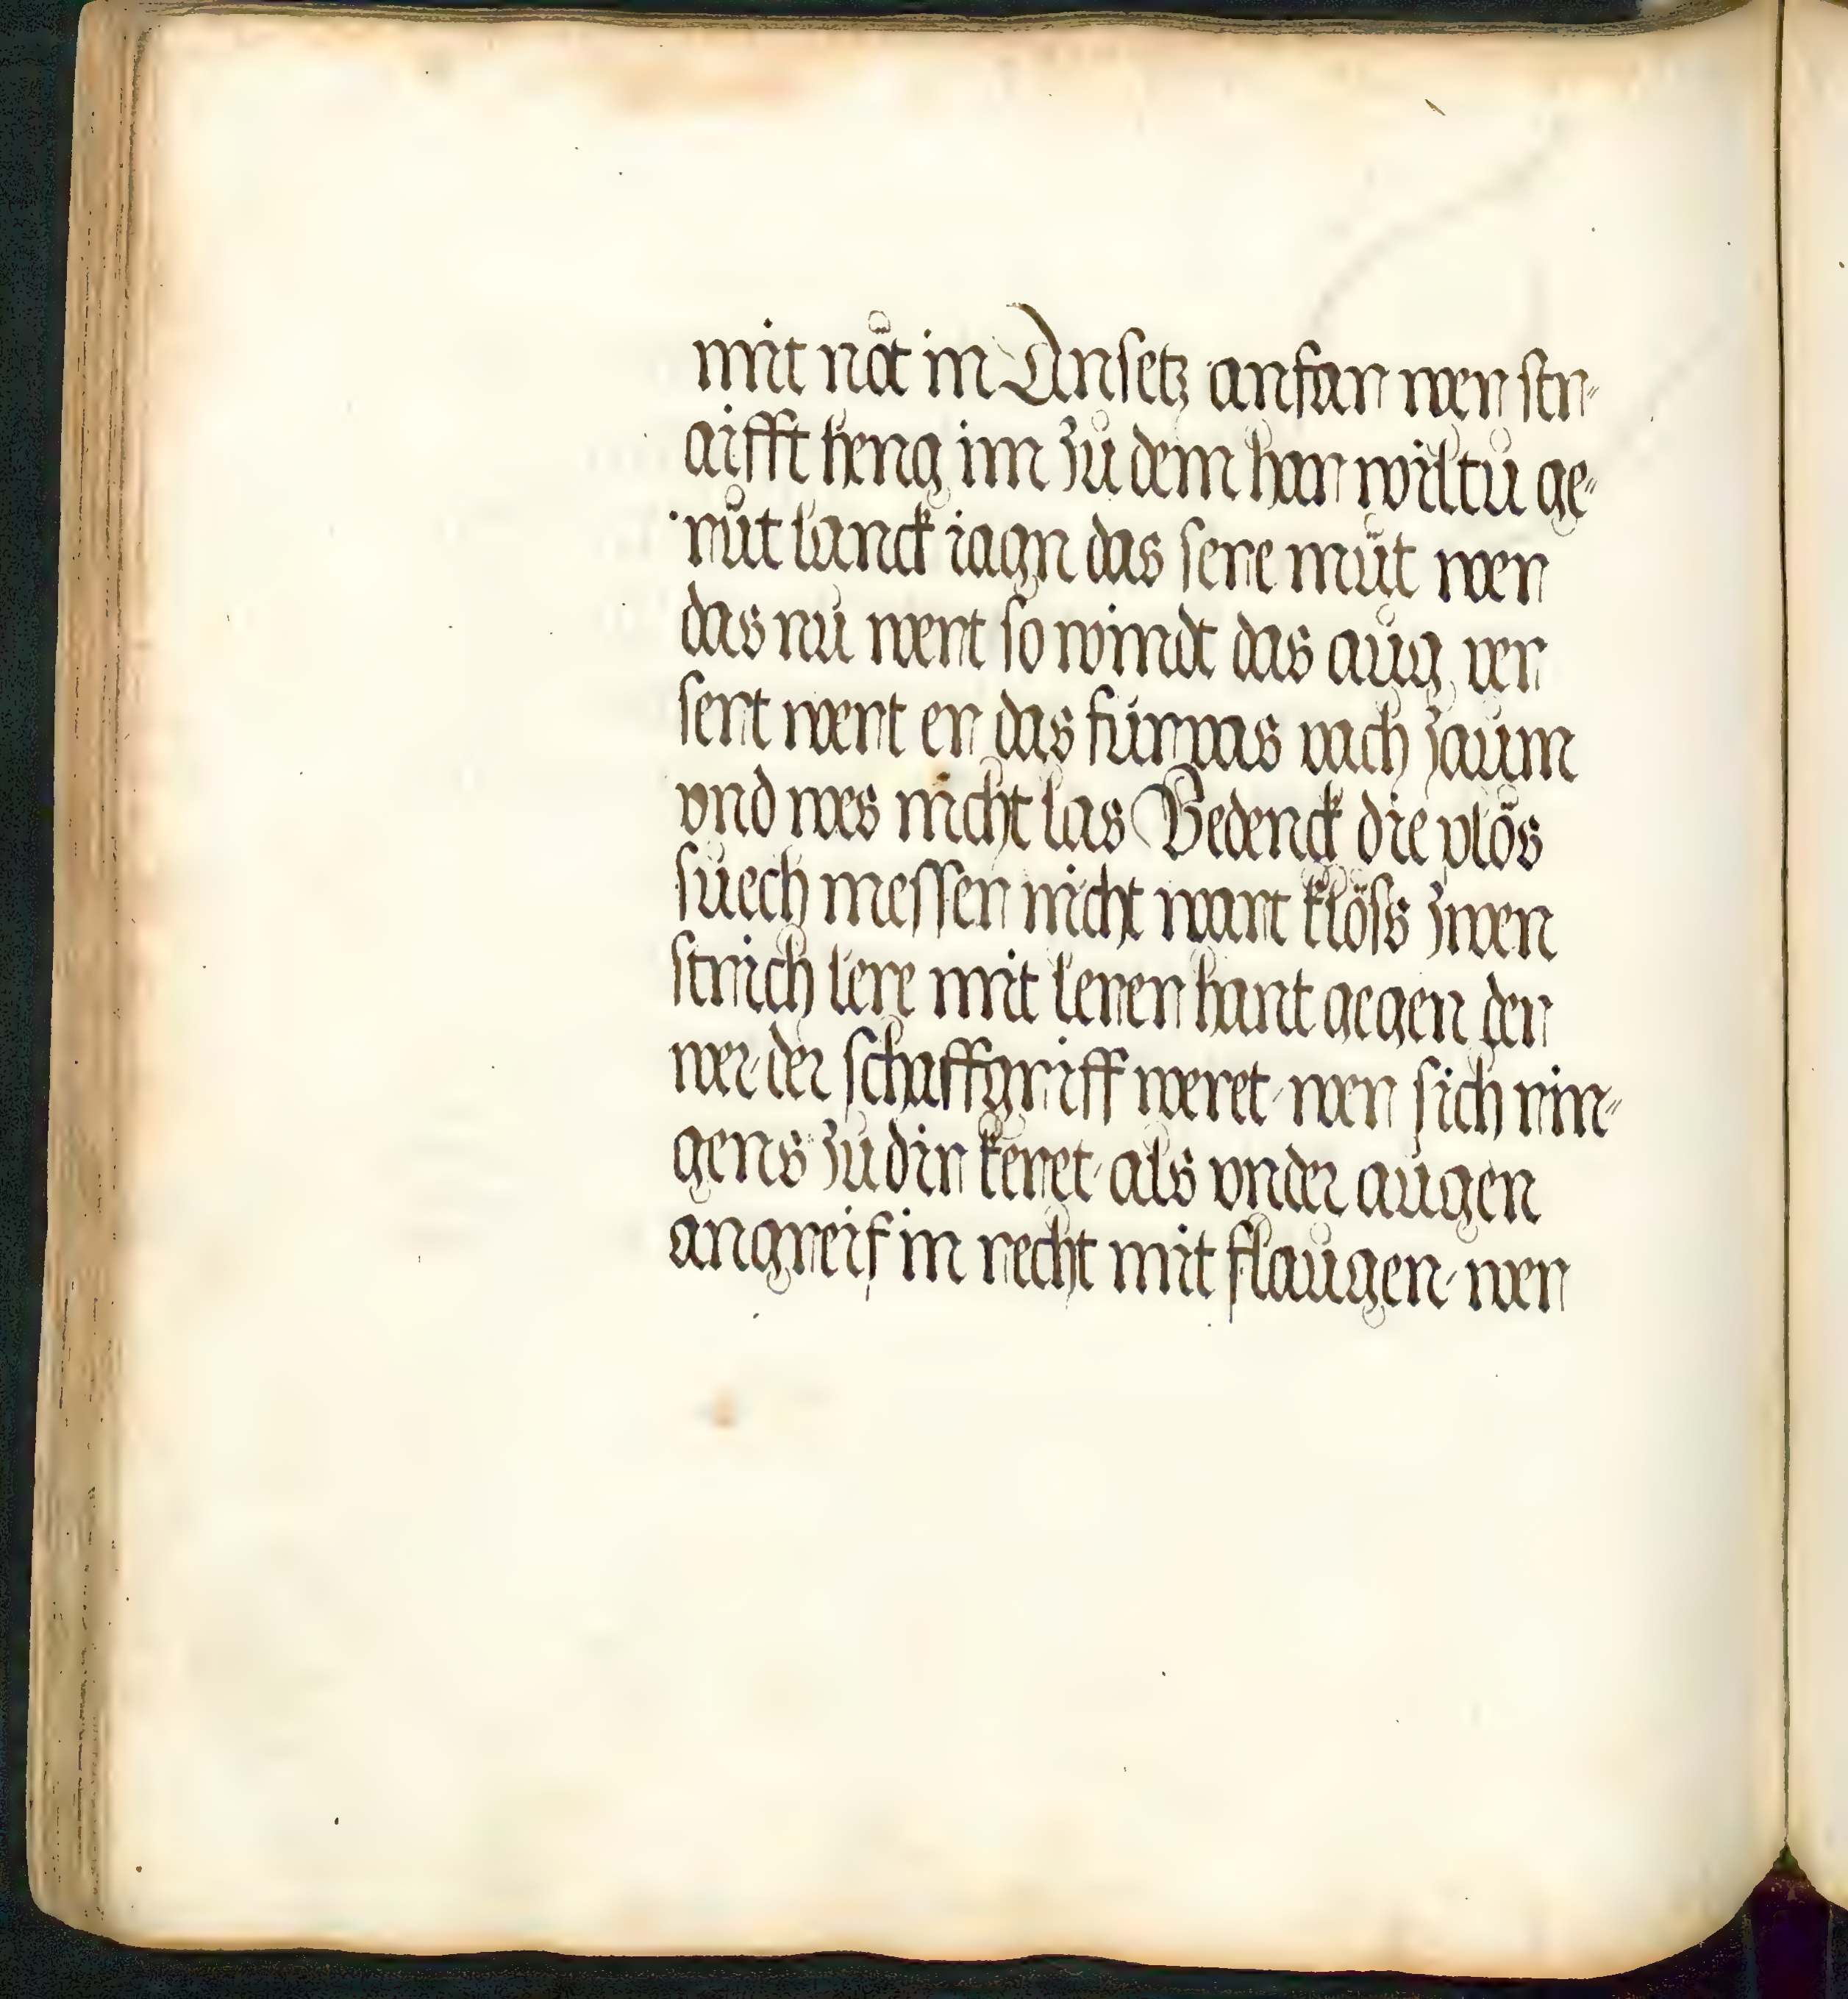 mit nöt in Ansetz anfar wer str-
aifft heng im zů dem har wiltu ge-
růt lanck iagn das sere můt wer
das nu wert so windt das aůg ver
sert wert er das fürwas vach zaum
vnd wes nicht las Bedenck die plös
suech messen nicht wart klöss zwen
strich lere mit lerer hant gegen der
wer der schaffgriff weret wer sich rin-
gens zu dir keret als vnder augen
angreif in recht mit flaůgen wer